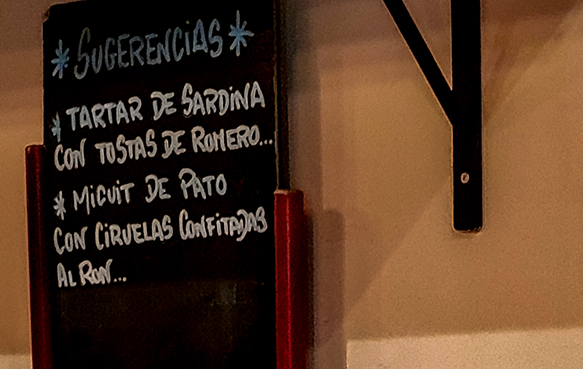 * SUGERENCIAS *
* TARTAR DE SARDINA
CON TOSTAS DE ROMERO...
* MICUIT DE PATO
CON CIRUELAS CONFITADAS
AL RON...